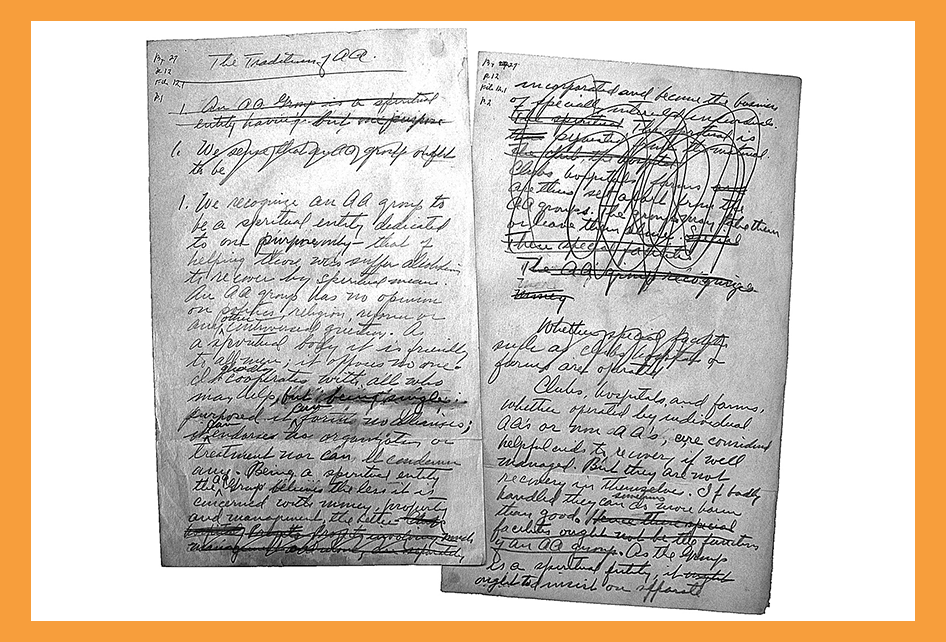 The Tradition of AA.
1 An AA Group is a spiritual
entity having but one purpose
1. We sense that any AA group ought
to be
1. We recognize an AA group to
be a spiritual entity dedicated
to one purpose only - that of
helping those who suffer alcoholism
to recover by spiritual means.
An AA group has no opinion
on politics, religion, reform or
any other controversial question. A
a spiritual body it is friendly
to all men; it opposes no one.
It gladly cooperates with all who
may help, but being single
purposed it can form no alliances;
can endorses no organization or
treatment nor can it condemn
any. Being a spiritual entity
the AA Group believes the less it is
concerned with money, property
and management, the better
incorporated and become the business
of specially interested individuals.
The spiritual The spiritual is
thus separated from the material
Clubs, hospitals, farms
are thus set apart from the
AA groups. The groups may use them
or leave them alone.
these special facilities
The AA group recognizes
money
Whether special facilities
such as clubs, hospitals or
farms are operated
Clubs, hospitals, and farms,
whether operated by individual
AA's or non AA's, are considered
helpful aids to recovery, if well
managed. But they are not
recovery in themselves. If badly
handled they can sometimes do more harm
than good. Hence these special
facilities ought not be the function
of an AA group. As the group
is a spiritual entity, it ought
ought to insist on separate